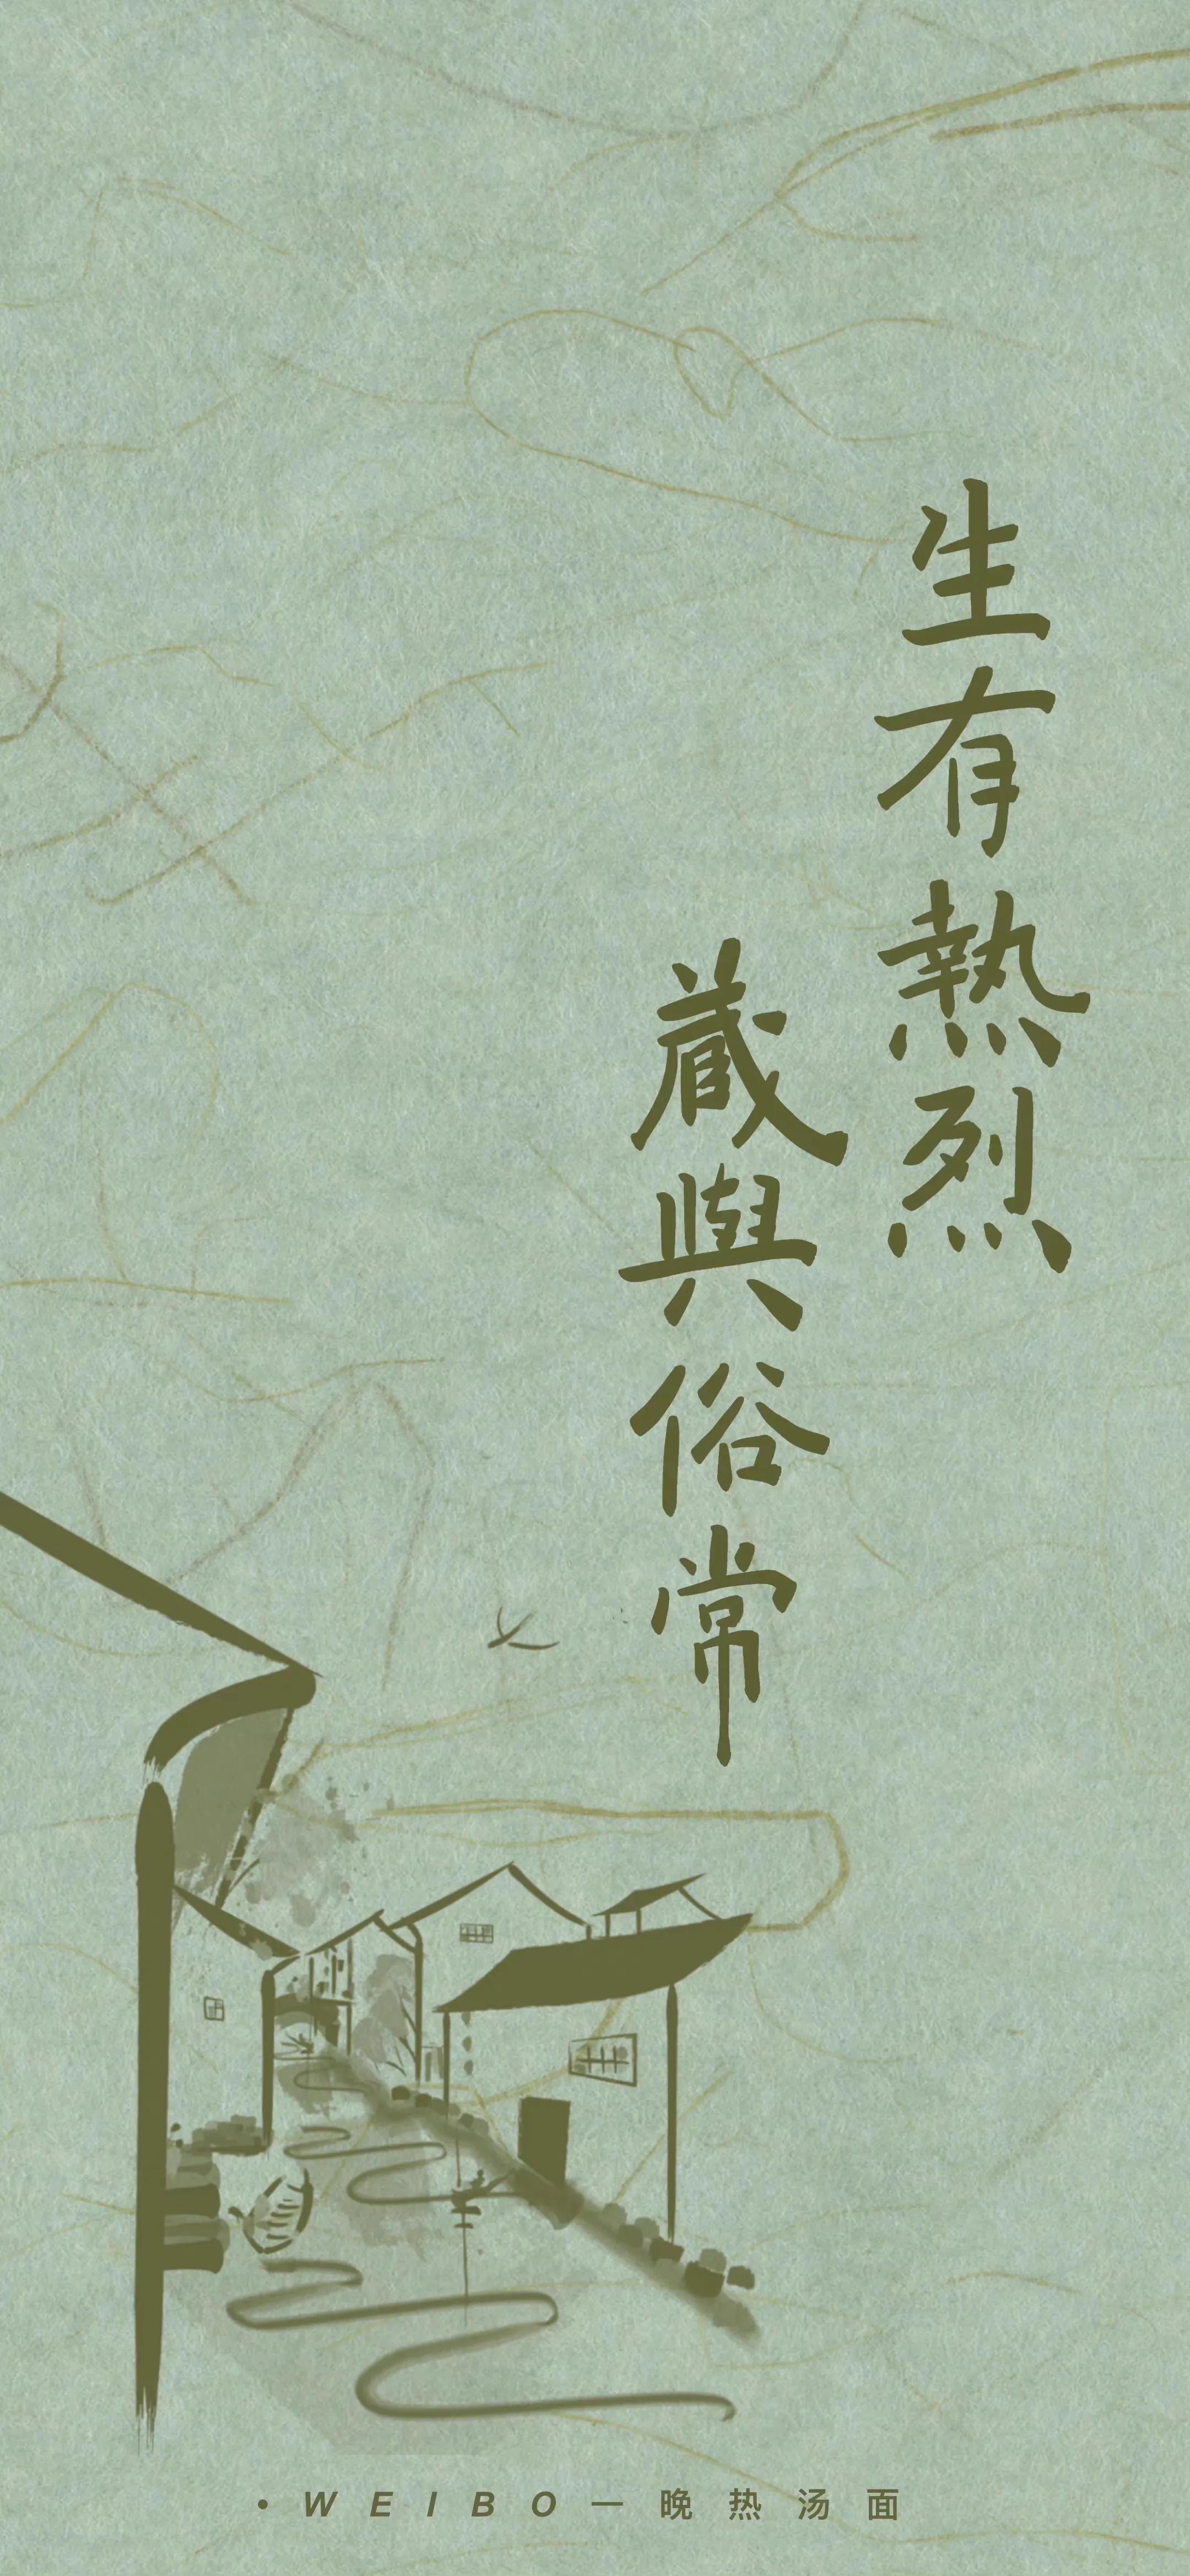 生有熱烈
蔵與俗常
• WEIBO一晚热汤面